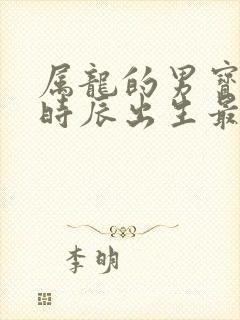 属龍的男寶
時辰出生最
李明